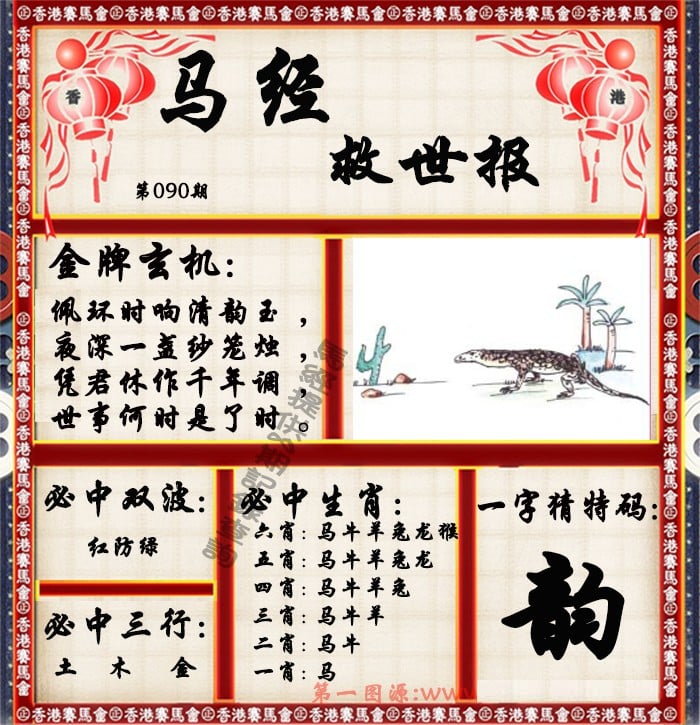 香港賽馬會
香 港
马经
救世报
第090期
金牌玄机：
佩环时响清韵玉，
夜深一盏纱笼烛，
凭君休作千年调，
世事何时是了时。
必中双波：
红防绿
必中三行：
土 木 金
必中生肖：
六肖：马牛羊兔龙猴
五肖：马牛羊兔龙
四肖：马牛羊兔
三肖：马牛羊
二肖：马牛
一肖：马
一字猜特码：
韵
第一图源:www